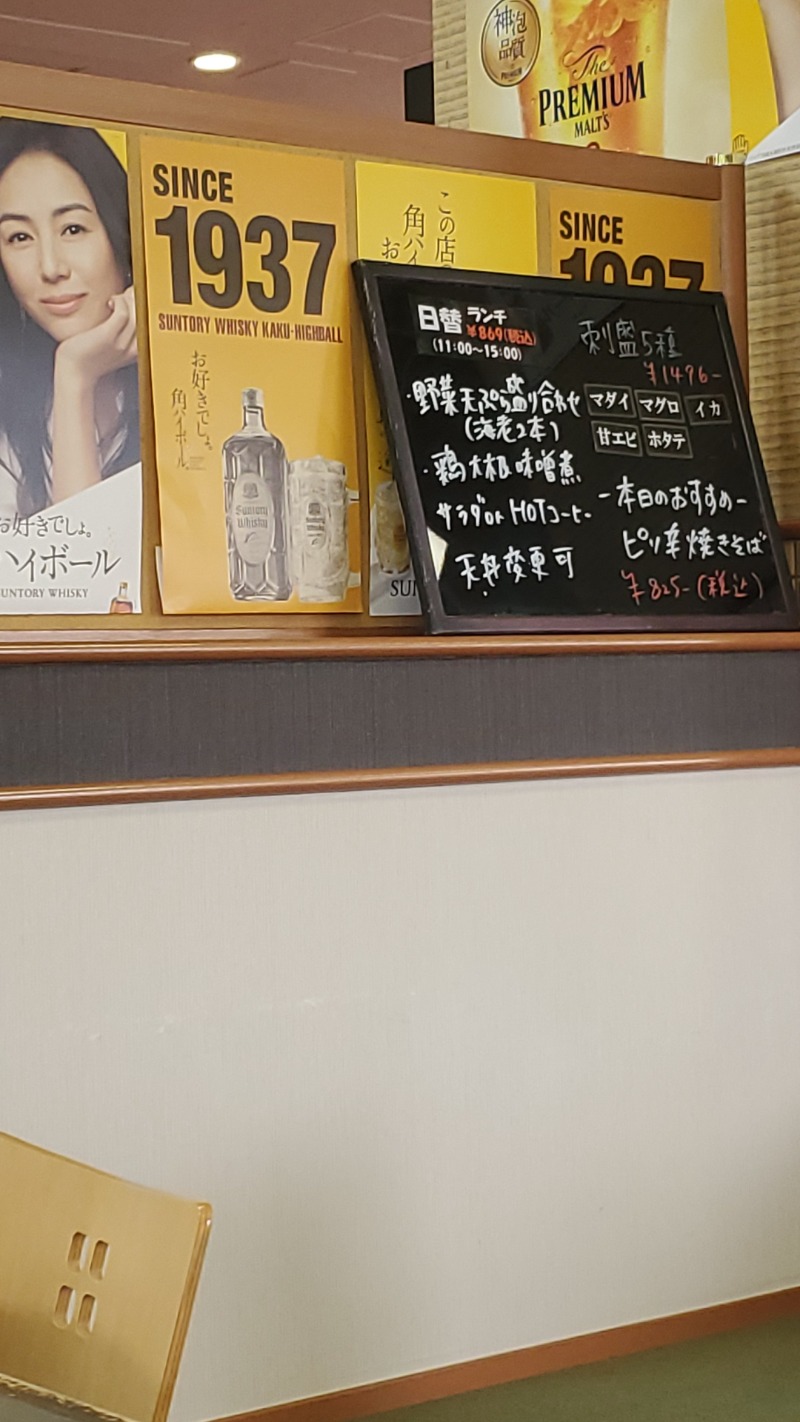 神泡
品質
PREMIUM
The
PREMIUM
MALT'S
お好きでしょ。
ハイボール
SUNTORY WHISKY
SINCE
1937
SUNTORY WHISKY KAKU-HIGHBALL
お好きでしょ。
角ハイボール。
Suntory
Whisky
この店の
角ハイ
お
SUN
SINCE
1937
日替ランチ
¥869(税込)
(11:00〜15:00)
・野菜天ぷら盛り合わせ
(海老2本)
・鶏大根味噌煮
サラダor HOTコーヒー
天丼変更可
刺盛5種
¥1496-
マダイ
マグロ
イカ
甘エビ
ホタテ
-本日のおすすめ-
ピリ辛焼きそば
¥825-(税込)